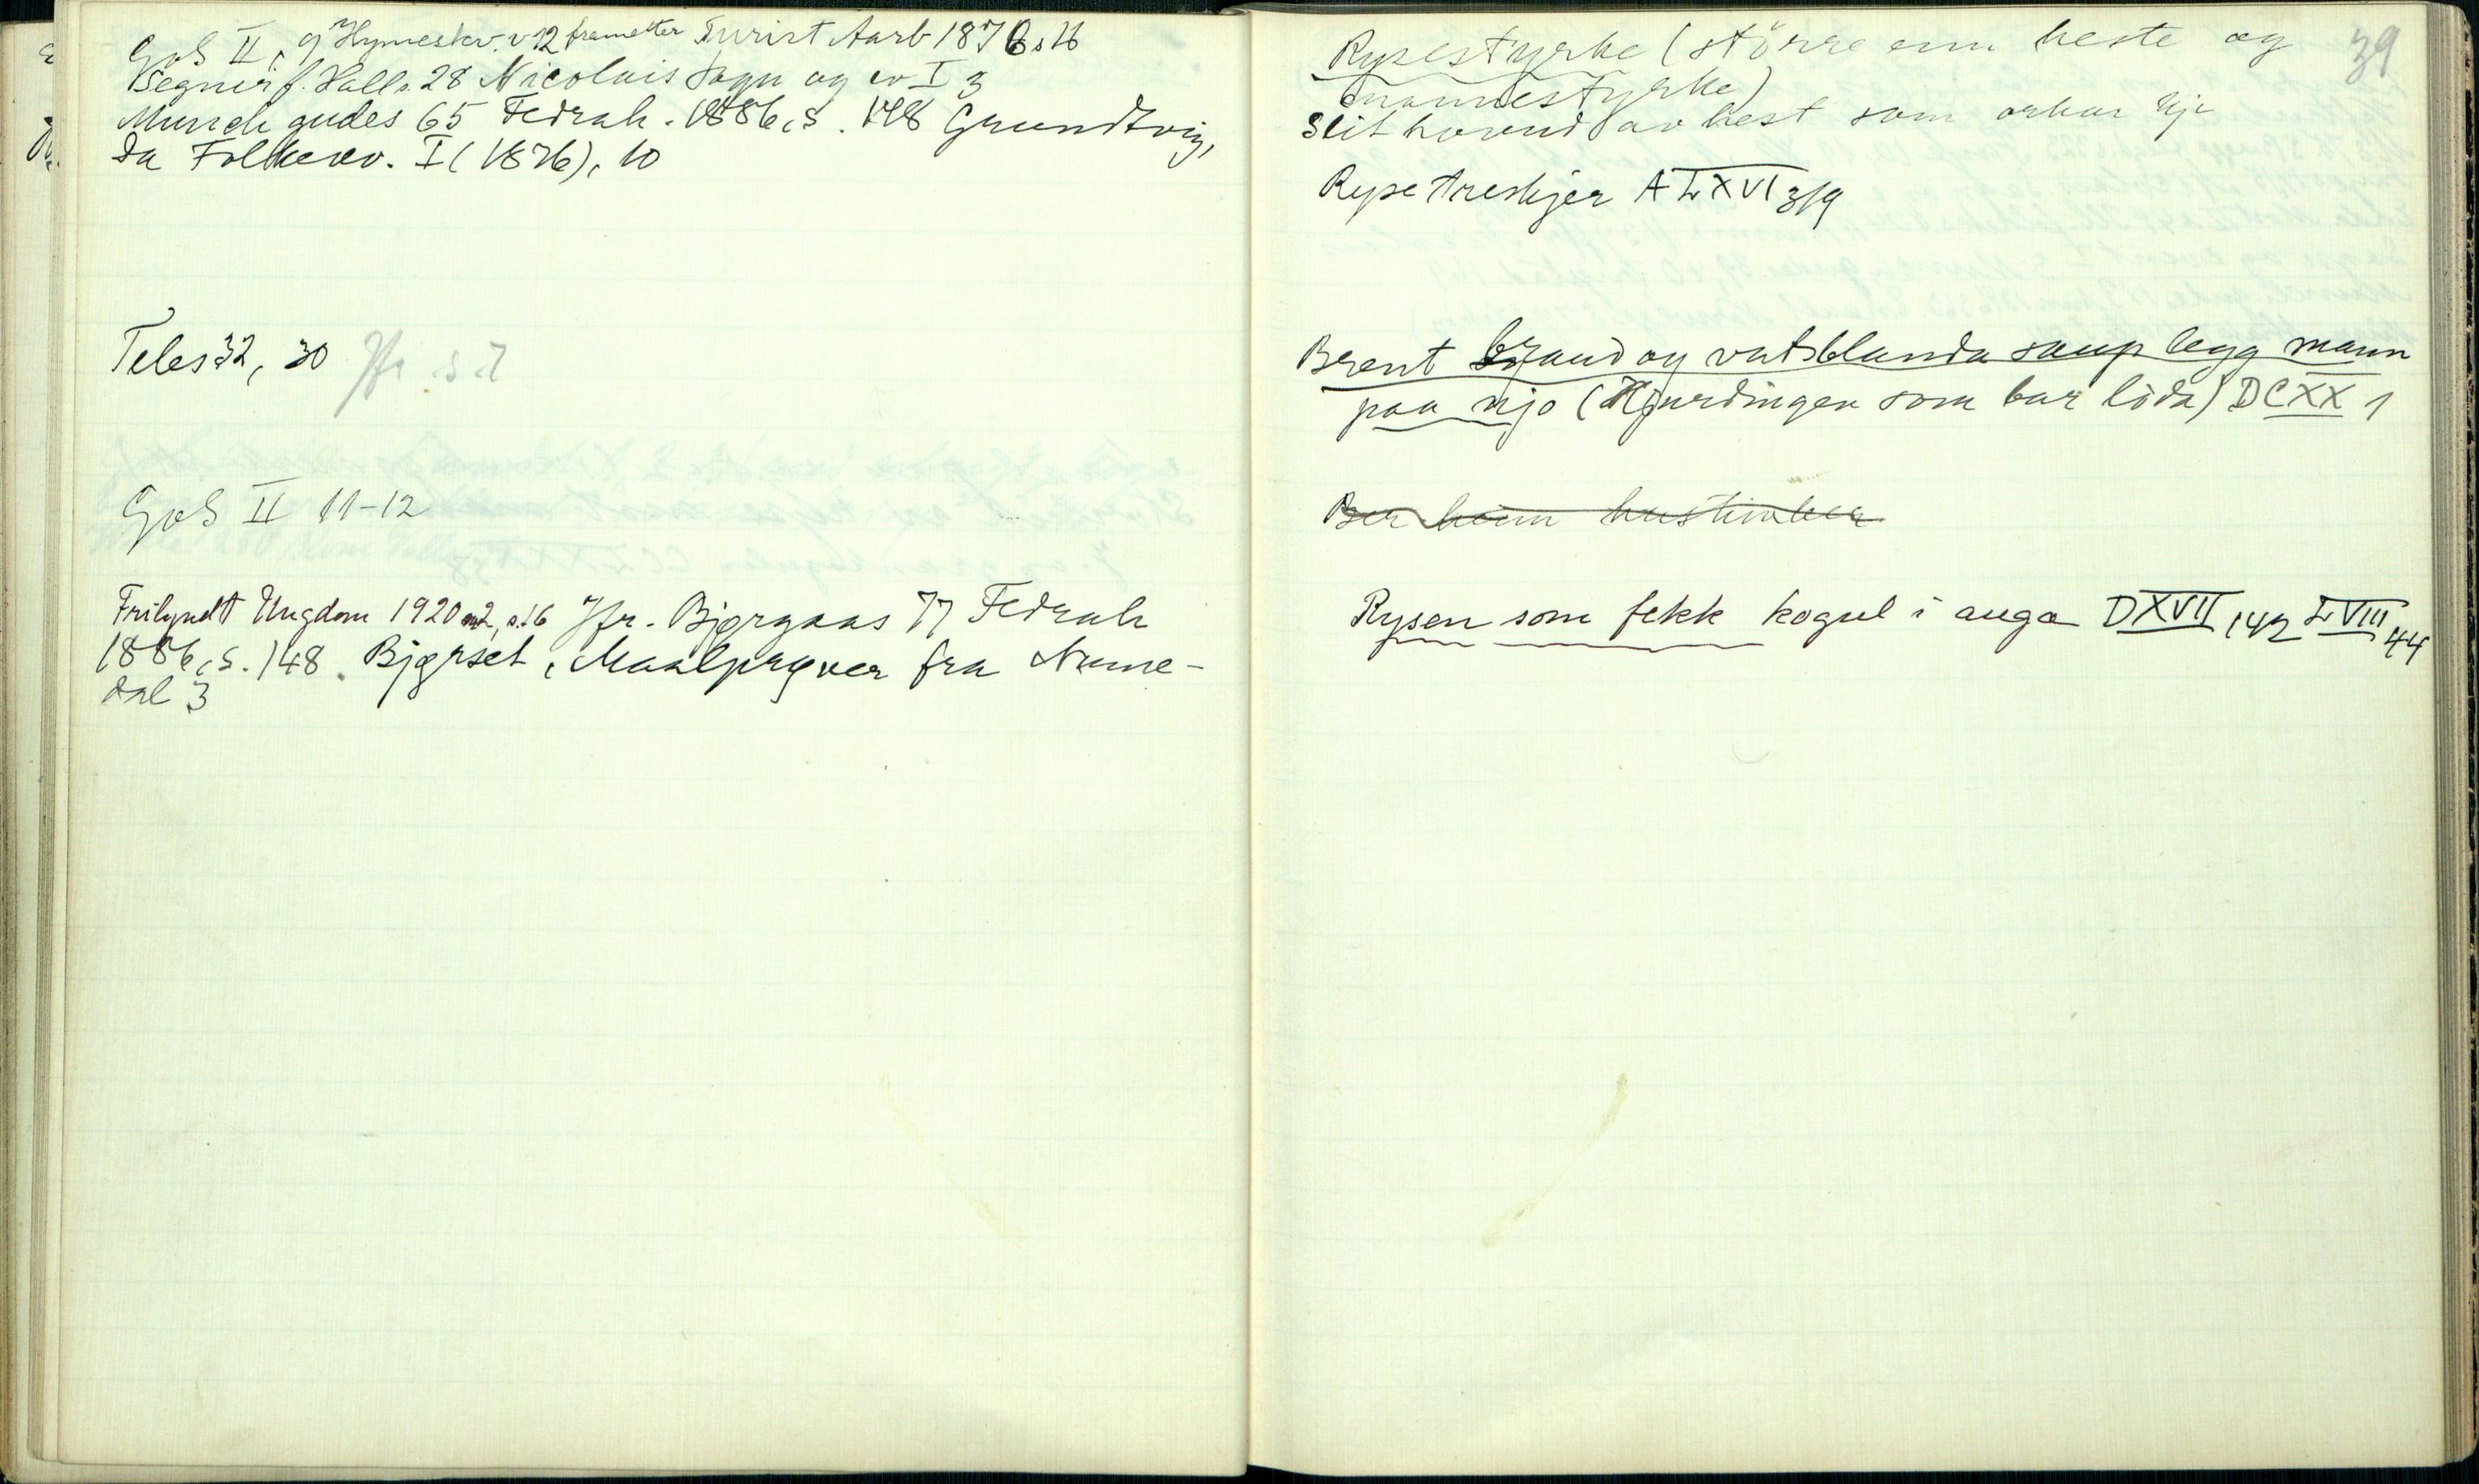 GoS II, 9 Hymeskv. v 12 frametter Turist Aarb 1876 s 16
Segner f. Hall s. 28 Nicolais Sogn og ev I 3
Munch gudes 65 Fedrah. 1886, s. 148 Grundtvig,
Da Folkeev. I (1876), 10
Teles 32, 30 Jfr s 7
GoS II 11-12
Frilyndt Ungdom 1920 m2, s. 16 Jfr. Bjørgaas 77 Fedrah
1886, s. 148. Bjørset, Maalprøver fra Nume-
dal 3
39
Rysestyrke (större enn heste og
mannestyrke)
Slit hovud av hest som orkar kje
Ryse treskjer A LXVI 319
Brent braud og vatsblanda saup legg mann
paa njo (Kjurdingen som bar löda) DCXX 1
Ber heim hustimber
Rysen som fekk kogul i auga DXVII 142 LVIII 44